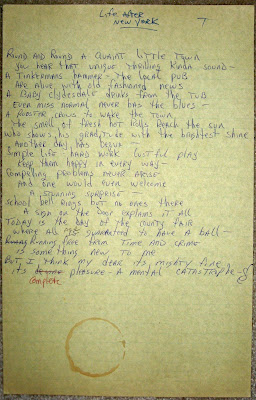 Life After
New York
7
Round and Round a quaint little town
you hear that unique thrilling kinda sound -
A Tinkermans hammer - the local pub
Are alive with old fashioned news
A Baby Clydesdale drinks from the tub
Even miss normal never has the blues -
A rooster crows to wake the town
The smell of fresh hot rolls reach the sun
who shows his gratitude with the brightest shine
Another day has begun -
Simple life, hard work, lustful play
Keep them happy in every way -
Compelling problems never arise
And one would even welcome
A stunning surprise -
School bell rings but no ones there
A sign on the door explains it all
Today is the day of the county fair
where all are guaranteed to have a ball -
Running free from time and crime
is something new to me
But, I think my dear its, mighty fine
its pleasure - a mental catastrophe -
Complete